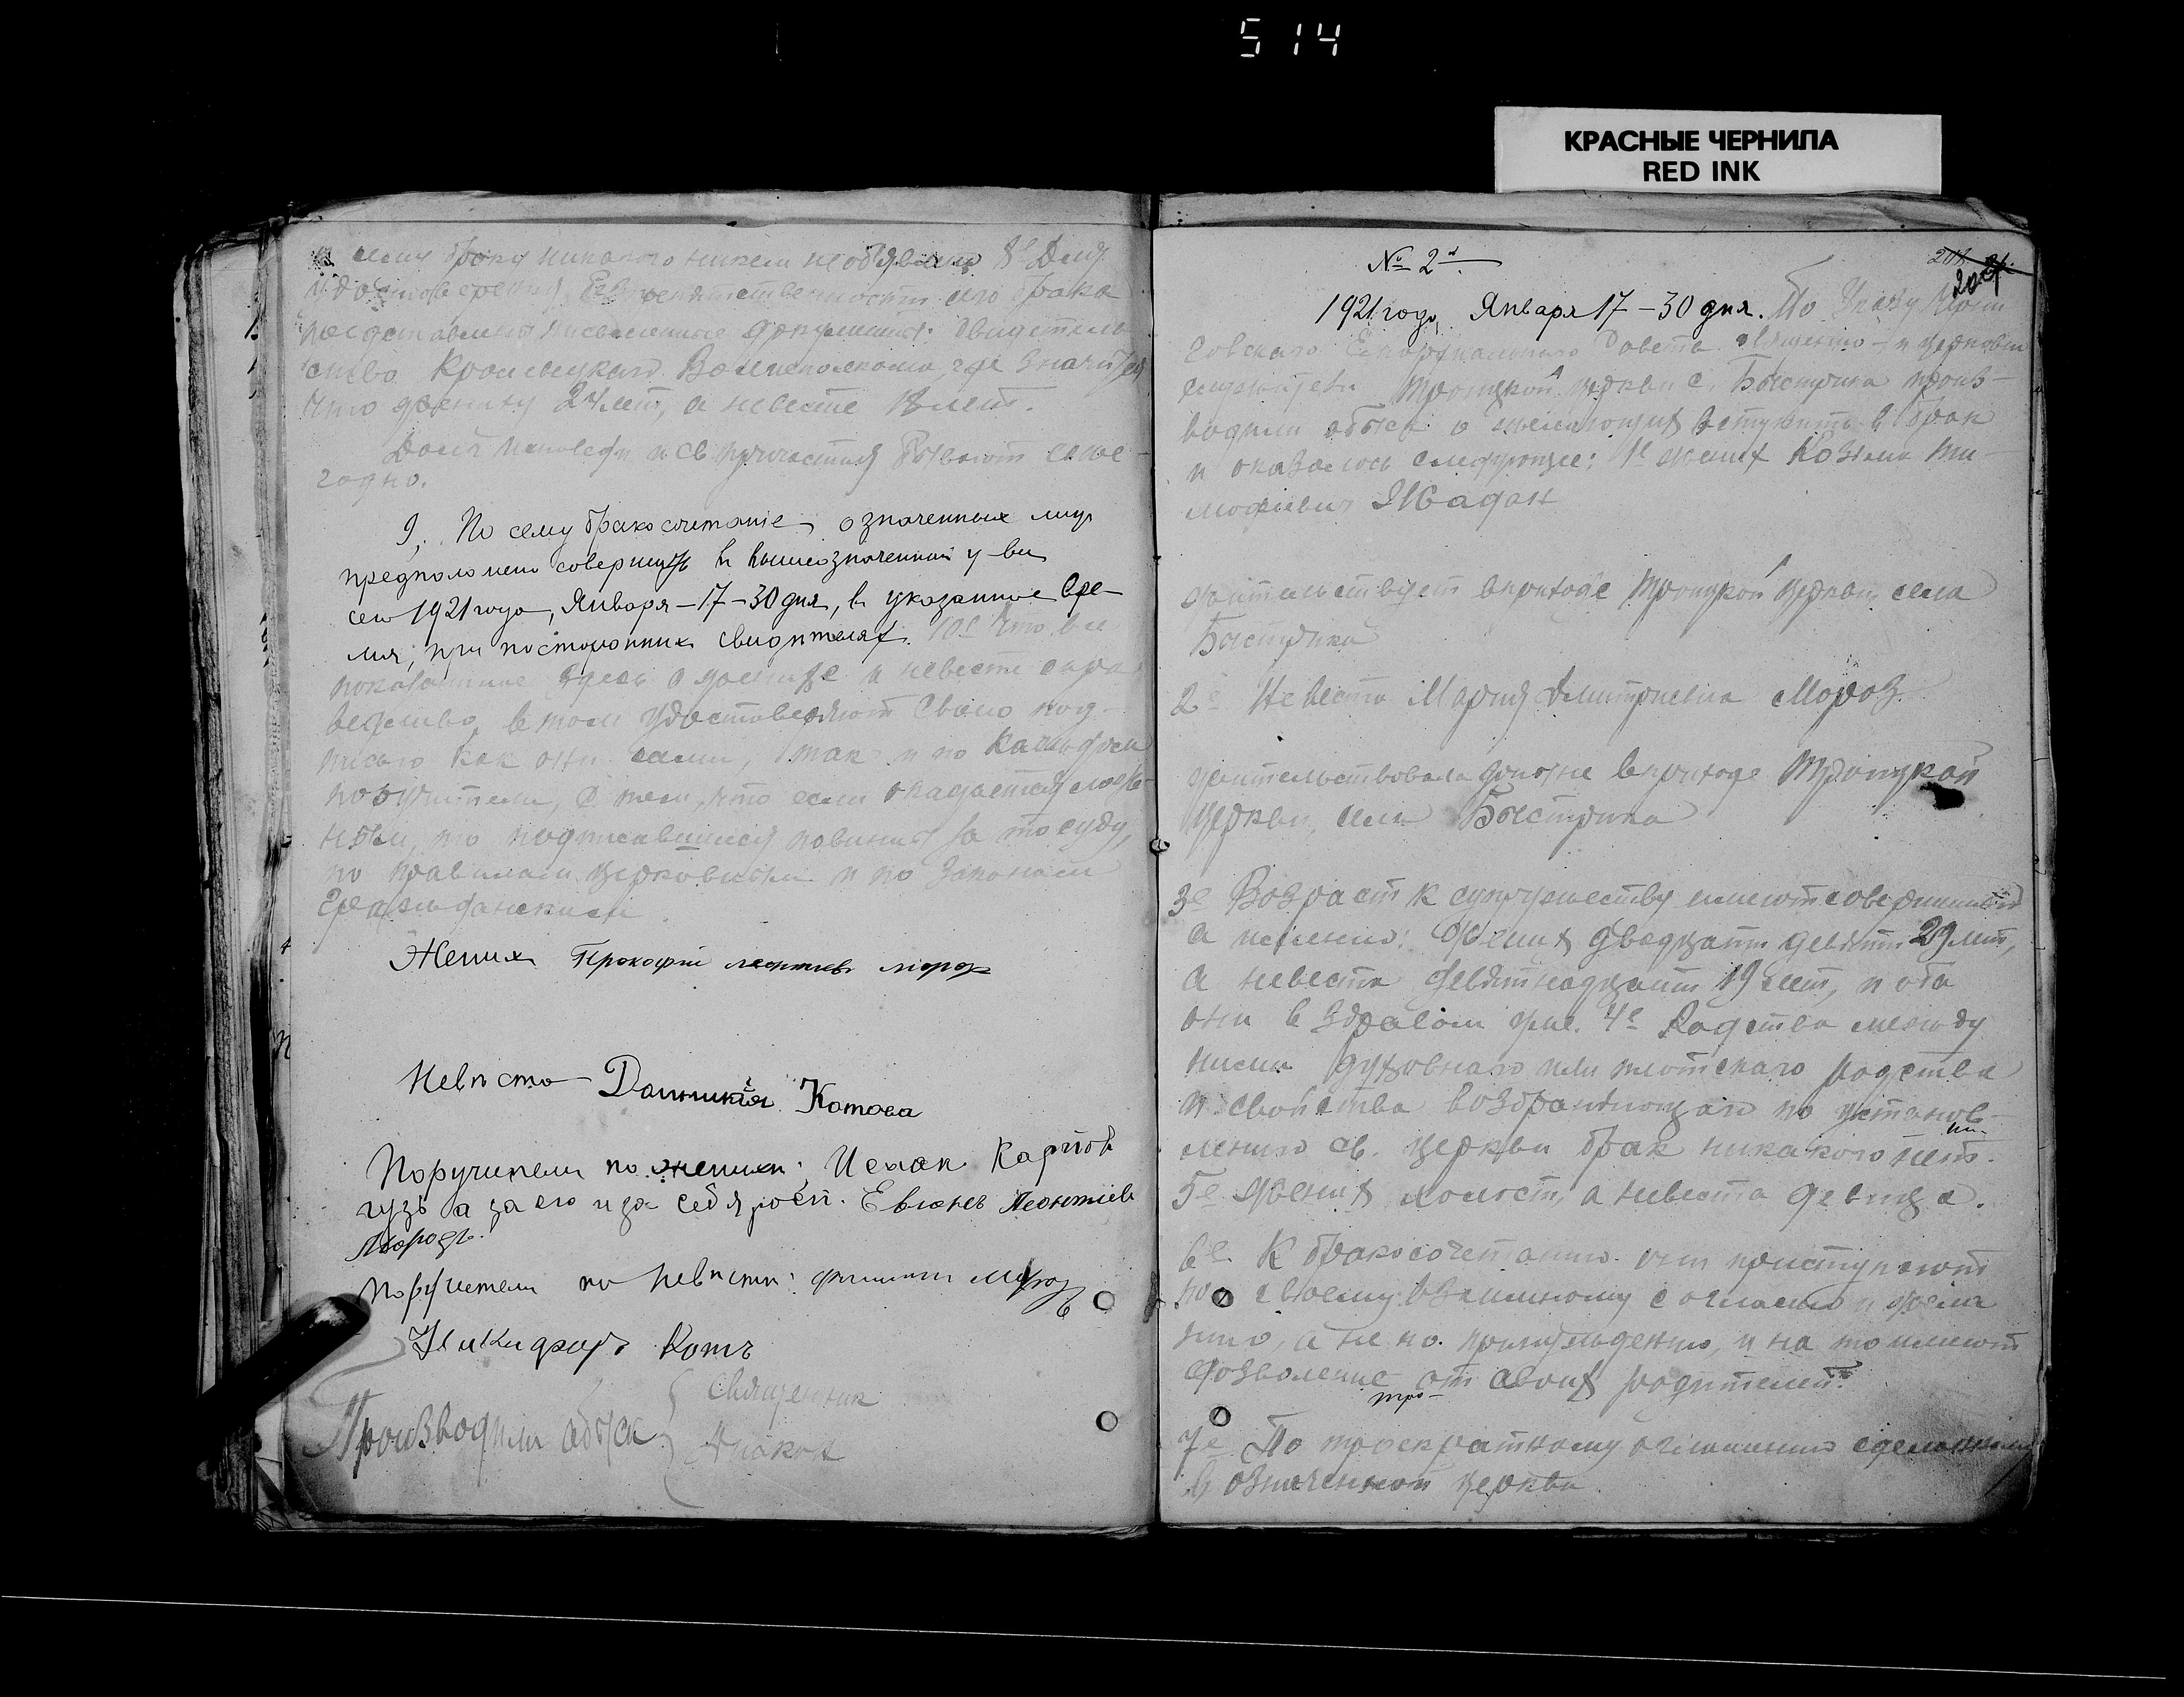 514
КРАСНЫЕ ЧЕРНИЛА
RED INK
к сему браку никакого никем не объявлено 8е Для
удостоверения безпрепятственности сего брака
представлены письменные документы: Свидетель
ство Кролевецкого Волисполкома, где значится
что жениху 24 лет, а невесте 18 лет.
Долг исповеди и св причастия бывают еже-
годно.
9, По сему бракосочетание означенных лиц
предположено совершить в вышеозначенной ц-ви
сего 1921 года, Января-17-30 дня, в указанное вре-
мя, при посторонних свидетелях. 10е Что все
показанное здесь о женихе и невесте спра
ведливо, в том удостоверяют своею под-
писью как они сами, так и по каждом
поручители, с тем, что если окажется лож-
ным, то подписавшиеся повинны за то суду,
по правилам церковным и по законам
гражданским.
Жених Прокофий леонтиев мороз
Невѣста Домникія Котова
Поручители по женихи: Исаак Карпов
гузь а за его и за себя росп. Евгенъ Леонтиев
Морозъ.
Поручители по невѣсти: филипп Морозъ
Никифоръ Котъ
Производили обыск
Священник
Диакон
№ 2й
1921 года, Января 17-30 дня. По Указу Черни
говского Епархиального Совета священно-и церковно
служители Троицкой церкви с. Быстрика произ-
водили обыск о желающих вступить в брак
и оказалось следующее: 1е жених Козьма Ти-
мофиевич Жадан
жительствует в приходе Троицкой церкви села
Быстрика
2е Невеста Мария Дмитриевна Мороз.
жительствовала доныне в приходе Троицкой
церкви, села Быстрика
3е Возраст к супружеству имеют совершенный
а именно: жених двадцати девяти 29 лет,
а невеста девятнадцати 19 лет, и оба
они в здравом уме. 4е Родства между
ними духовного или плотского родства
и свойства возбраняющаго по установ-
лению св. церкви брак никакого нет.
5е жених холост, а невеста девица.
6е К бракосочетанию они приступают
по своему взаимному согласию и жела
нию, а не по принуждению, и на то имеют
дозволение от своих родителей.
7е По троекратному оглашению сделанному
в означенной церкви